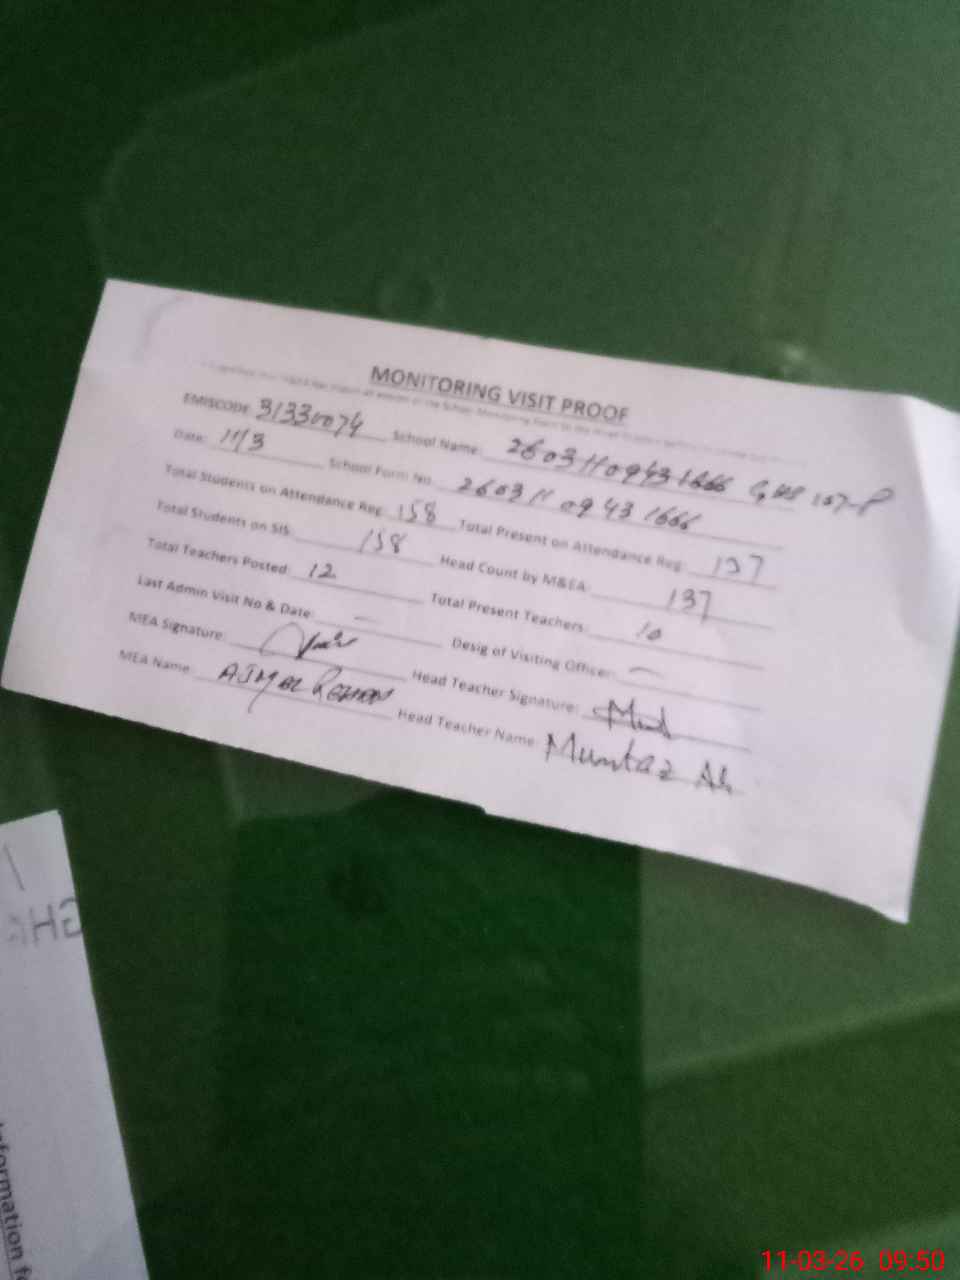 MONITORING VISIT PROOF
EMISCODE 31330074 School Name: 26031109431666 GHS 107-P
Date: 11/3 School Form No. 26031109431666
Total Students on Attendance Reg: 158 Total Present on Attendance Reg: 137
Total Students on SIS: 158 Head Count by M&EA: 137
Total Teachers Posted: 12 Total Present Teachers: 10
Last Admin Visit No & Date: — Desig of Visiting Officer: —
MEA Signature: Head Teacher Signature:
MEA Name: AJMAL REHAN Head Teacher Name: Mumtaz Ali
GHS
Information fo
11-03-26 09:50